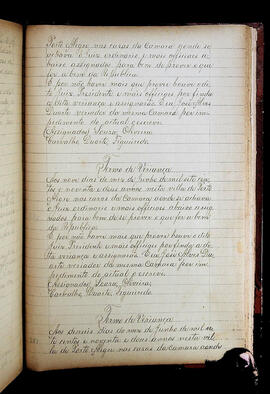 Porto Alegre nas casas da Camara aonde se
achava o Juiz ordinario e mais officiaes a-
baixo assignados para bem de prover o que
for a bem da Republica
E por não haver mais que prover houve o di-
to Juiz Presidente e mais officiaes por finda
a dita vriança e assignarão. Eu José Alves
Duarte vereador da mesma Camara por im-
pedimento do actual o escrevi.
(Assignados) Souza, Oliveira,
Carvalho, Duarte, Siqueira
Termo de Vriança
Aos nove dias do mez de Junho de mil sete cen-
tos e noventa e dois annos nesta villa de Porto
Alegre nas casas da Camara aonde se achava
o Juiz ordinario e mais officiaes abaixo assig-
nados para bem de se prover o que for a bem
da Republica
E por não haver mais que prover houve o dito
Juiz Presidente e mais officiaes por finda a di-
ta vriança e assignarão. Eu José Alves Du-
arte vereador da mesma Camara por im-
pedimento do actual o escrevi
(Assignados) Souza, Oliveira,
Carvalho, Duarte, Siqueira
Termo de Vriança
Aos dias do mez de Junho de mil se-
te centos e noventa e dois annos nesta vil-
la de Porto Alegre nas casas da Camara aonde